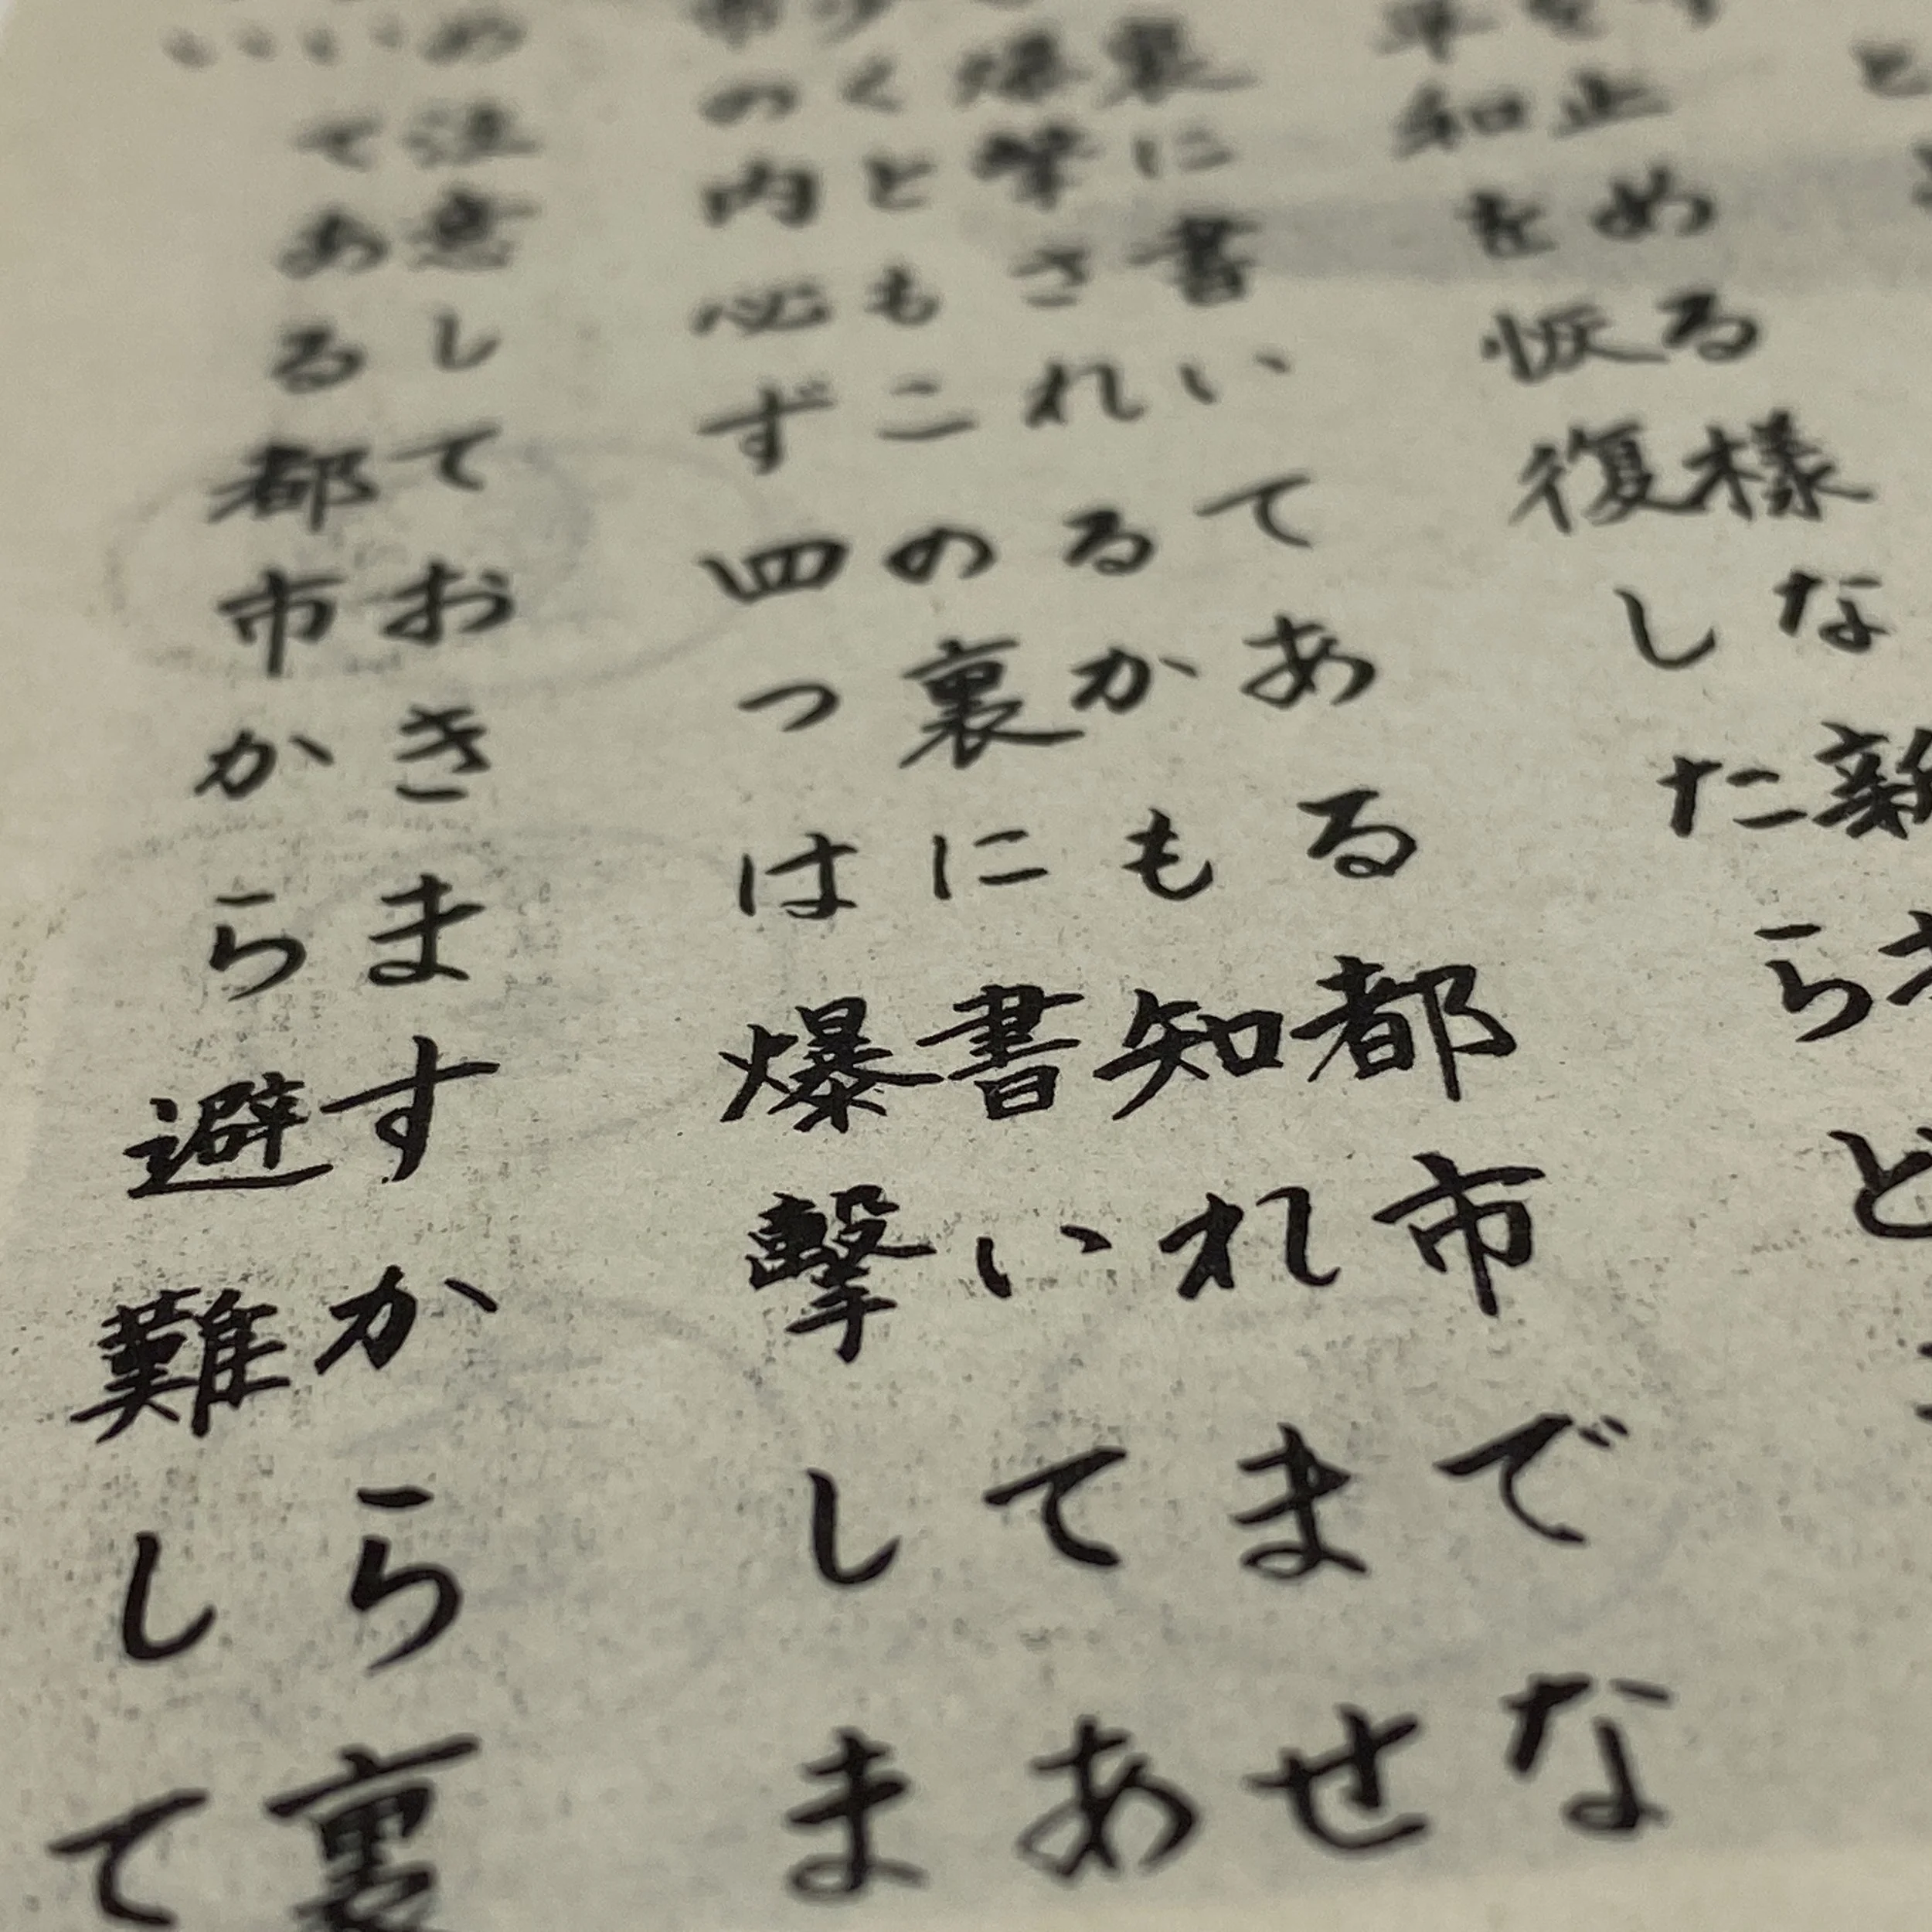 止める様な新
和を恢復したらど
裏に書いてある都市でな
爆撃されるかも知れませ
くともこの裏に書いてあ
の内必ず四つは爆撃しま
め注意しておきますから裏
てある都市から避難して